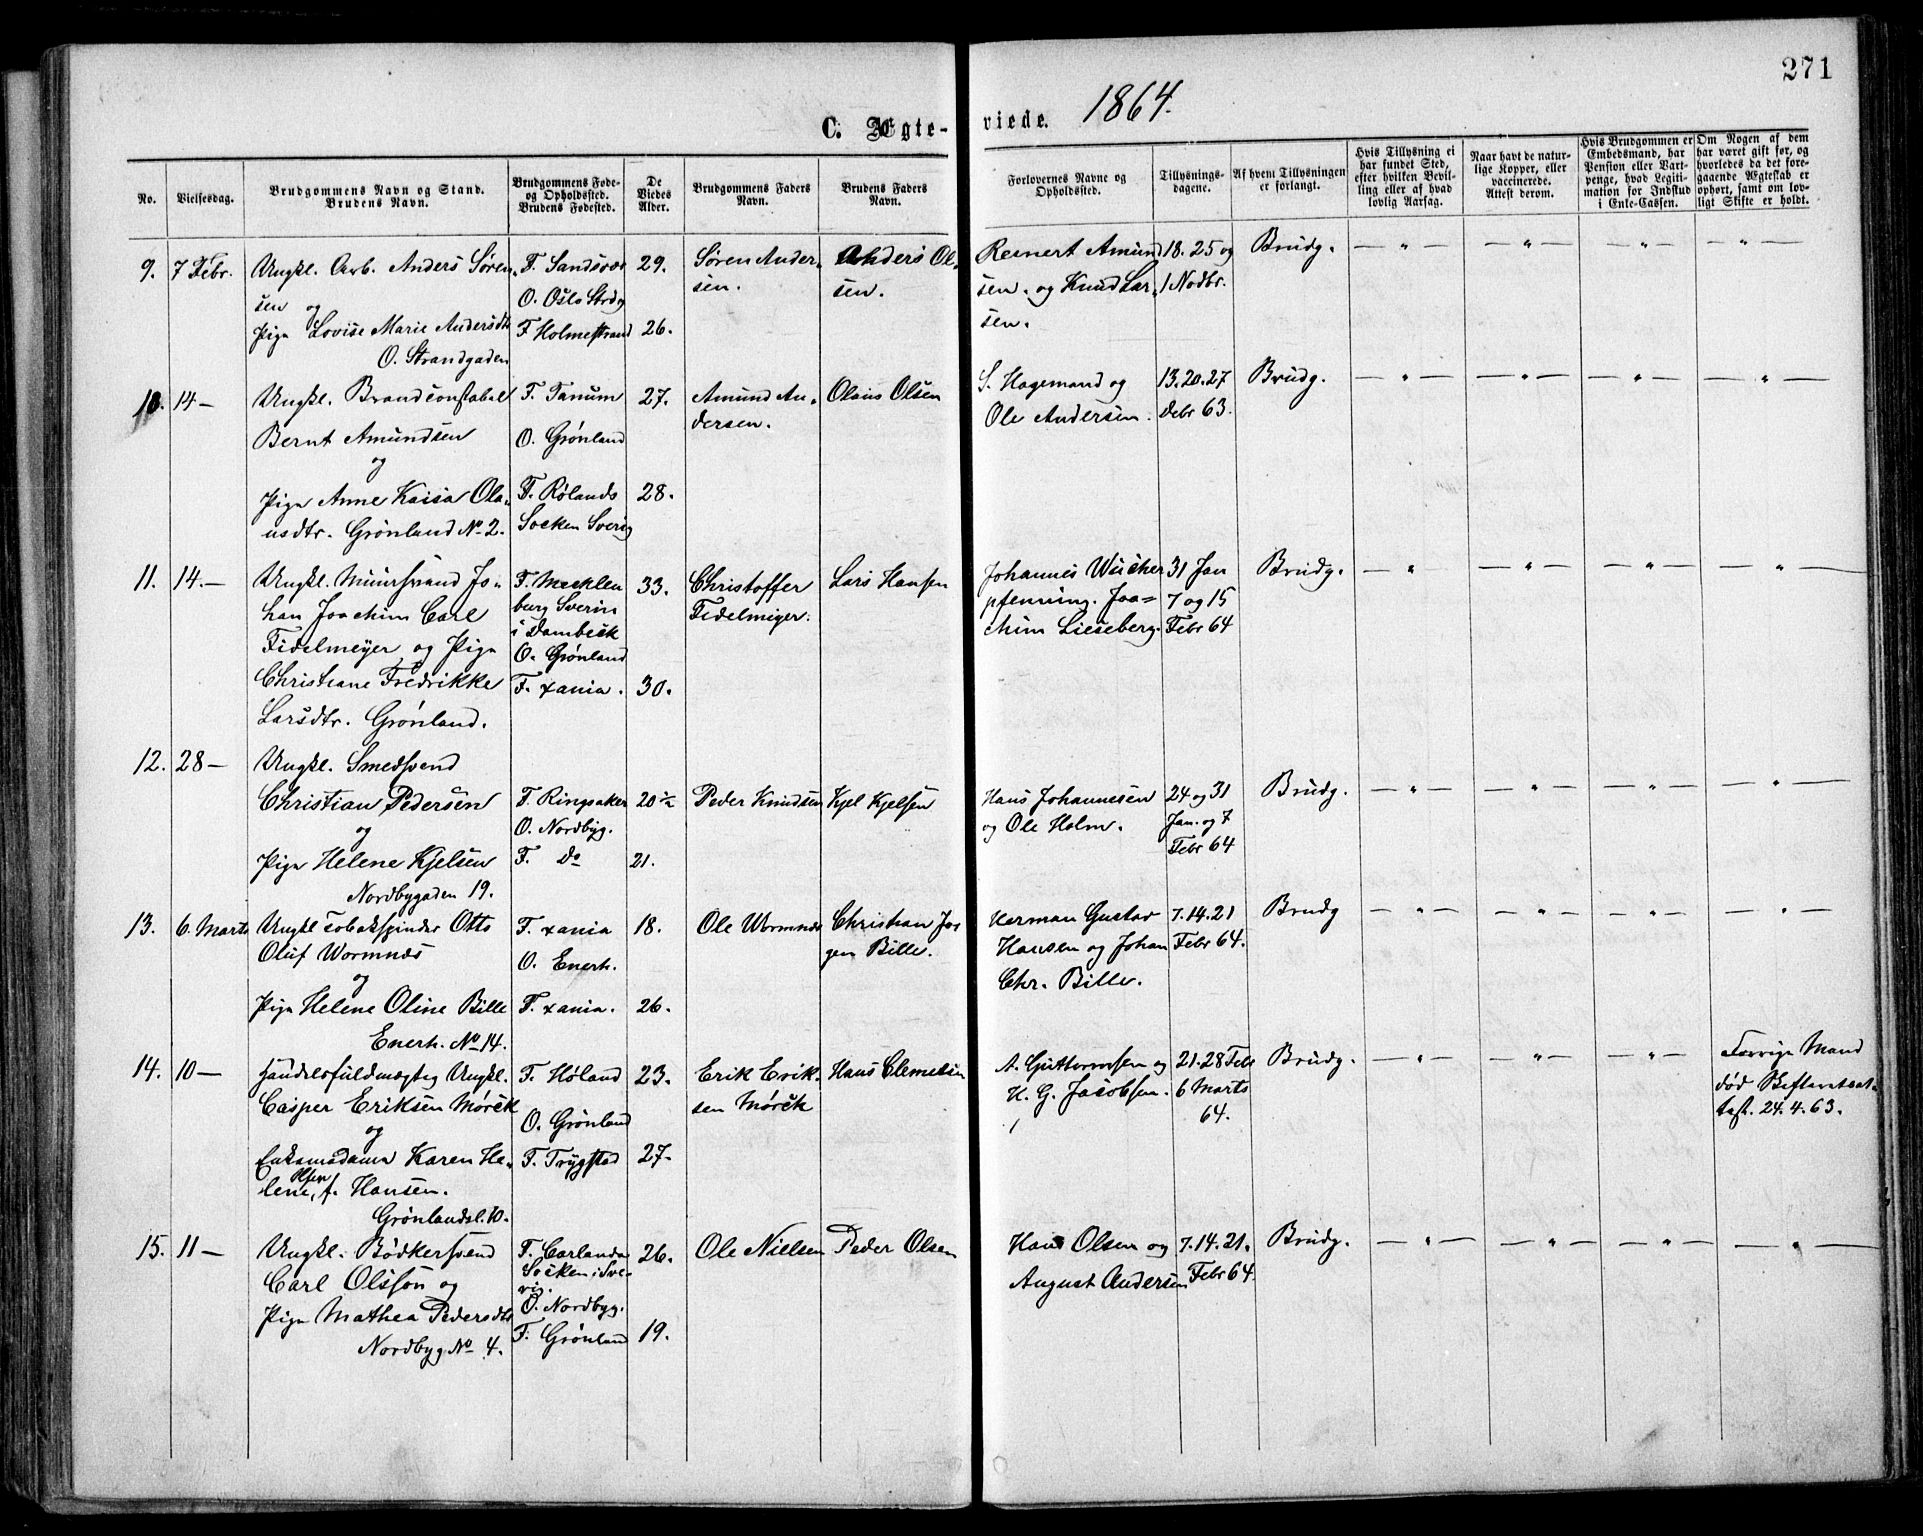 271
C. Ægte-
viede. 1864.
No.
Vielsesdag.
Brudgommens Navn og Stand.
Brudens Navn.
Brudgommens Føde-
og Opholdssted.
Brudens Fødested.
De
Viedes
Alder.
Brudgommens Faders
Navn.
Brudens Faders
Navn.
Forlovernes Navne og
Opholdssted.
Tillysnings-
dagene.
Af hvem Tillysningen
er forlangt.
Hvis Tillysning ei
har fundet Sted,
efter hvilken Bevil-
ling eller af hvad
lovlig Aarsag.
Naar havt de natur-
lige Kopper, eller
vaccinerede.
Attest derom.
Hvis Brudgommen er
Embedsmand, har
Pension eller Vart-
penge, hvad Legiti-
mation for Indskud
i Enke-Cassen.
Om Nogen af dem
har været gift før, og
hvorledes da det fore-
gaaende Ægteskab er
ophørt, samt om lov-
ligt Skifte er holdt.
9. 7 Febr.
Ungkl. Arb. Anders Søren-
sen og
Pige Lovise Marie Andersdtr
O. Strandgaden
F. Sandsvær
O. Oslo Strdg
F Holmestrand
29.
26.
Søren Ander-
sen.
Anders Ol-
sen.
Reinert Amund
sen. og Knud Lar-
sen.
18. 25 og
1 Novbr.
Brudg. — " — — " — — " — — " —
10. 14 —
Ungkl. Brandconstabel
Bernt Amundsen
og
Pige Anne Kaisa Ola-
usdtr. Grønland No 2.
F. Tanum
O. Grønland
F. Rølands
Socken Sverig
27.
28.
Amund An-
dersen.
Olaus Olsen
S. Hagemand og
Ole Andersen.
13. 20. 27
Debr 63.
Brudg. — " — — " — — " — — " —
11. 14. —
Ungkl. Muursvend Jo-
han Joachim Carl
Fidelmeyer og Pige
Christiane Fredrikke
Larsdtr. Grønland.
F. Mecklen
burg Sverin
i Dambeck
O. Grønland
F. xania.
33.
30.
Christoffer
Fidelmeiger.
Lars Hansen
Johannes Wücher
pfenning. Joa-
chim Lieseberg.
31 Jan
7 og 15
Febr 64
Brudg. — " — — " — — " — — " —
12. 28 —
Ungkl. Smedsvend
Christian Pedersen
og
Pige Helene Kjelsen
Nordbygaden 19.
F. Ringsaker
O. Nordbyg.
F. Do
20 ½
21.
Peder Knudsen
Kjel Kjelsen
Hans Johannesen
og Ole Holm.
24 og 31
Jan. og 7
Febr 64
Brudg. — " — — " — — " — — " —
13. 6. Marts
Ungkl Tobakspinder Otto
Oluf Wormnæs
og
Pige Helene Oline Bille
Enerh. No 14.
F. xania
O. Enerh.
F. xania.
18.
26.
Ole Wormnæs
Christian Jør
gen Bille.
Herman Gustav
Hansen og Johan
Chr. Bille.
7. 14. 21
Febr 64.
Brudg — " — — " — — " — — " —
14. 10 —
Handelsfuldmægtig Ungkl.
Casper Eriksen Mørck
og
Enkemadame Karen He-
lene Olsen, f. Hansen.
Grønlandsl. 10.
F. Høland
O. Grønland
F. Trygstad
23.
27.
Erik Erik-
sen Mørck
Hans Clemetsen
A. Guttormsen og
H. G. Jacobsen.
21. 28 Feb
6 Marts
64.
Brudg. — " — — " — — " —
Forrige Mand
død Skifteretsat-
test. 24. 4. 63.
15. 11 —
Ungkl. Bødkersvend
Carl Olsson og
Pige Mathea Pedersdtr
Nordbyg No 4.
F. Carlanda
Socken i Sve-
rig.
O. Nordbyg.
F. Grønland
26.
19.
Ole Nielsen
Peder Olsen
Hans Olsen og
August Andersen
7. 14. 21.
Febr 64.
Brudg. — " — — " — — " — — " —